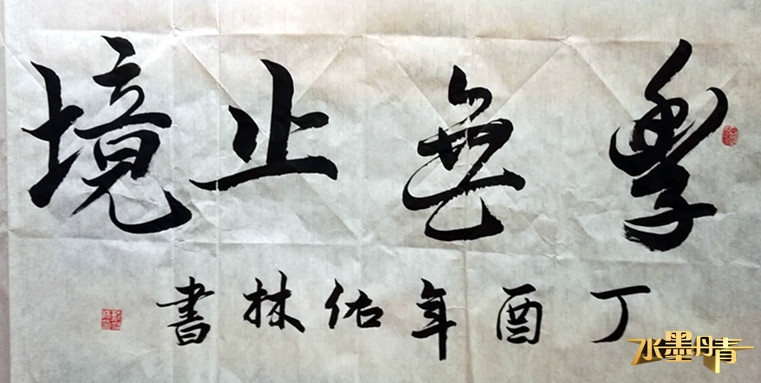 學無止境
丁酉年佑林書
水墨丹青